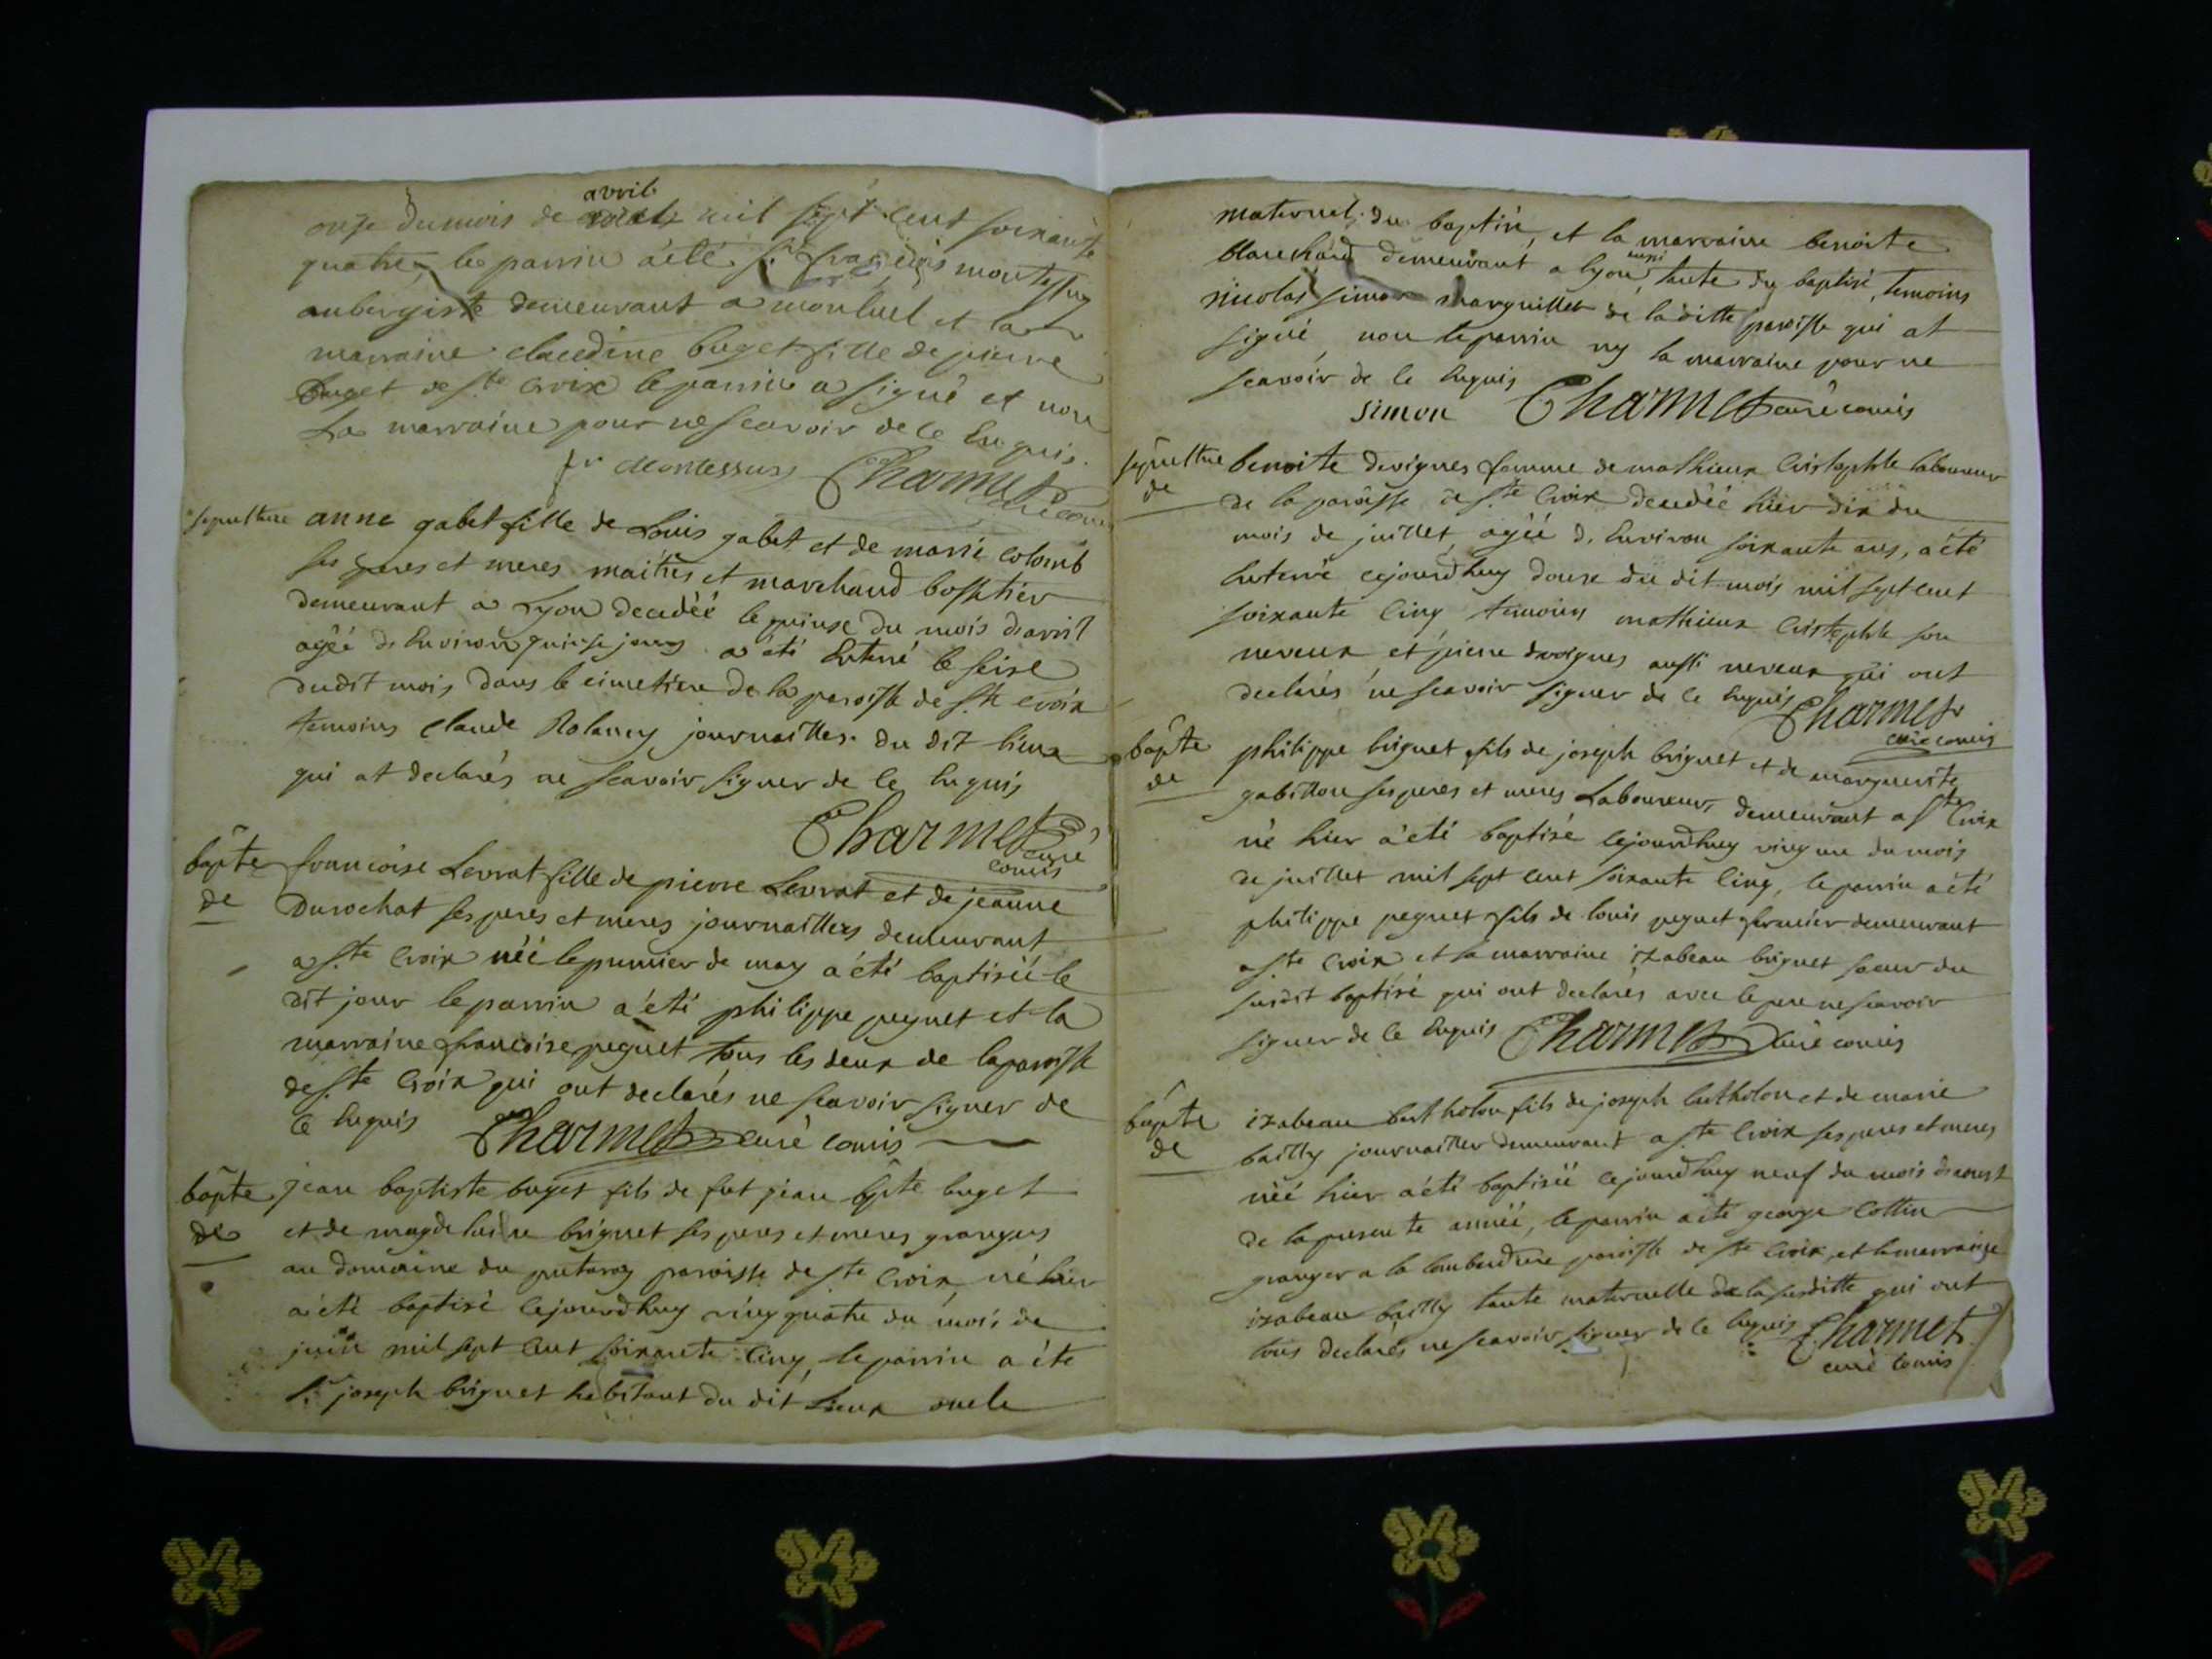 onze du mois de avril mil sept cent soixante
quatre, le parrin a été sr françois montessuy
aubergiste demeurant a monluel et la
marraine claudine buget fille de pierre
buget de ste croix le parrin a signé et non
La marraine pour ne scavoir de ce enquis.
fr montessuy Charmet curé comis
sepulture anne gabet fille de Louis gabet et de marie colomb
ses peres et meres maitres et marchand
demeurant a Lyon decedéé le quinse du mois d'avril
agéé d'environ quinse jours a été enterré le seise
dudit mois dans le cimetiere de la paroisse de ste croix
temoins claude Rolancy journaillier du dit lieux
qui at declarés ne scavoir signer de ce enquis
Charmet curé
comis
bapte françoise Levrat fille de pierre Levrat et de jeanne
de Durochat ses peres et meres journaillers demeurant
a ste Croix néé le premier de may a été baptiséé le
dit jour le parrin a été philippe peguet et la
marraine françoise peguet tous les deux de la paroisse
de ste Croix qui ont declarés ne scavoir signer de
ce enquis Charmet curé comis
bapte jean baptiste buget fils de fut jean bpte buget
de et de magdelaine briguet ses peres et meres grangers
au domaine du paroisse de ste Croix né hier
a été baptisé cejourdhuy vingquatre du mois de
juin mil sept cent soixante cinq, le parrin a été
sr joseph briguet habitant du dit Lieux oncle
maternel du baptisé, et la marraine benoite
blanchard demeurant a lyon aussi tante du baptisé, temoins
nicolas simon marguillier de la ditte paroisse qui at
signé non le parrin ny la marraine pour ne
scavoir de ce enquis
simon Charmet curé comis
sepulture benoite devignes femme de mathieux Cristophle laboureur
de de la paroisse de ste Croix decedéé hier dix du
mois de juillet, agéé d'environ soixante ans, a été
enterré cejourdhuy douse du dit mois mil sept cent
soixante cinq temoins mathieux Cristophle son
neveux et pierre devignes aussi neveux qui ont
declarés ne scavoir signer de ce enquis Charmet
curé comis
bapte philippe briguet fils de joseph briguet et de marguerite
de gabillon ses peres et meres Laboureurs demeurant a ste Croix
né hier a été baptisé cejourdhuy vingune du mois
de juillet mil sept cent soixante cinq, le parrin a été
philippe peguet fils de louis peguet fermier demeurant
a ste Croix et la marraine izabeau briguet soeur du
susdit baptisé qui ont declarés avec le pere ne scavoir
signer de ce enquis Charmet curé comis
bapte izabeau bertholon fils de joseph bertholon et de marie
de bailly journaillier demeurant a ste Croix ses peres et meres
néé hier a été baptiséé cejourdhuy neuf du mois d'aoust
de la presente annéé, le parrin a été george Cottin
granger a la paroisse de ste Croix, et la marraine
izabeau bailly tante maternelle de la susditte qui ont
tous declarés ne scavoir signer de ce enquis Charmet
curé comis